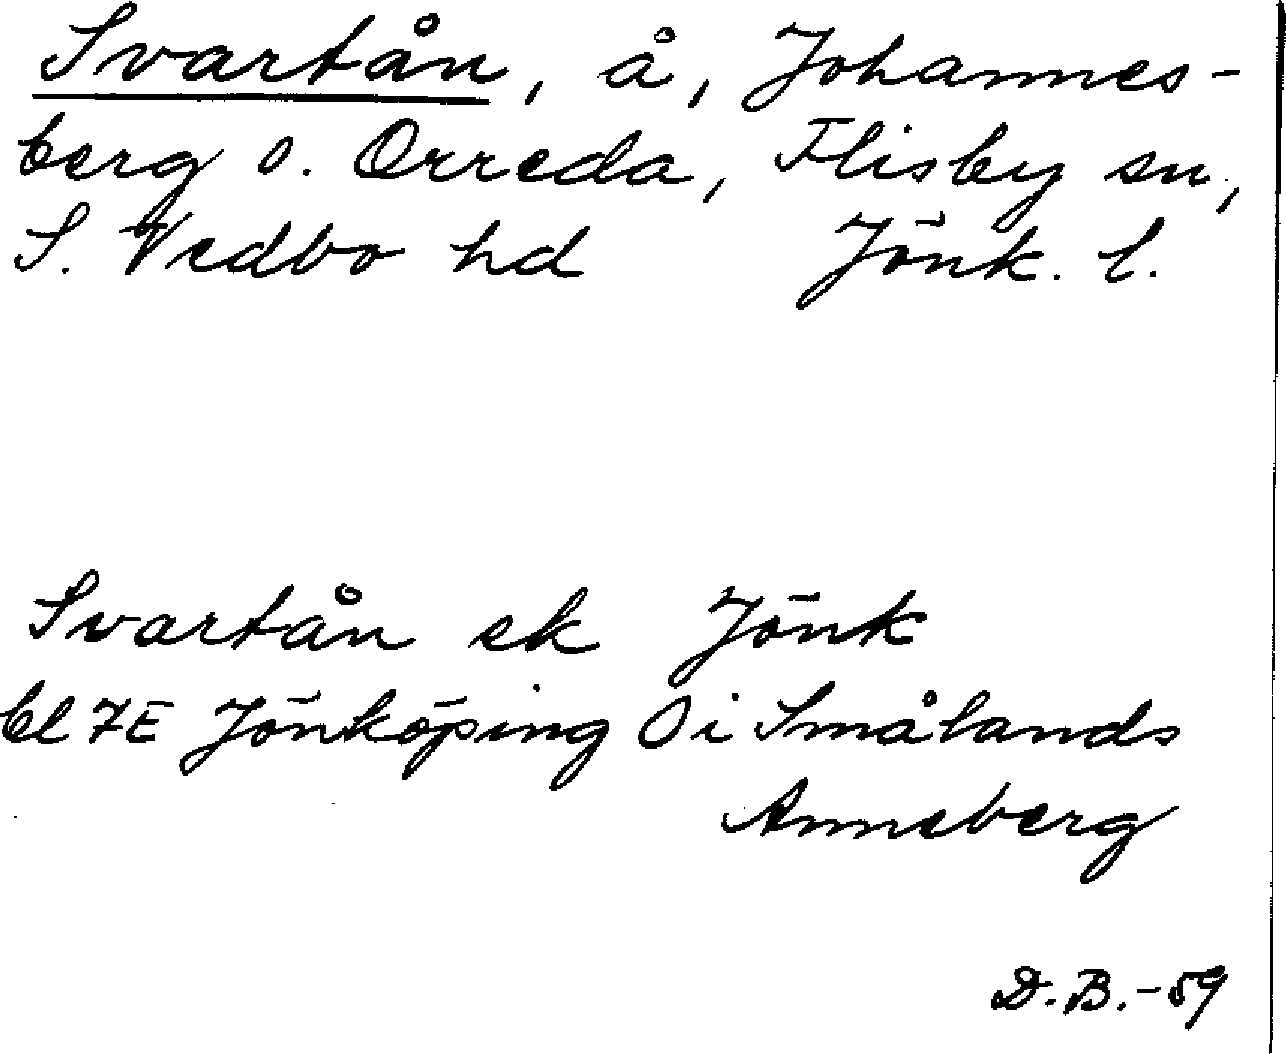 Svartån, å, Johannes-
berg o. Orreda, Flisby sn,
S. Vedbo hd Jönk. l.
Svartån ek Jönk
bl 7E Jönköping O i Smålands
Anneberg
D.B.-59